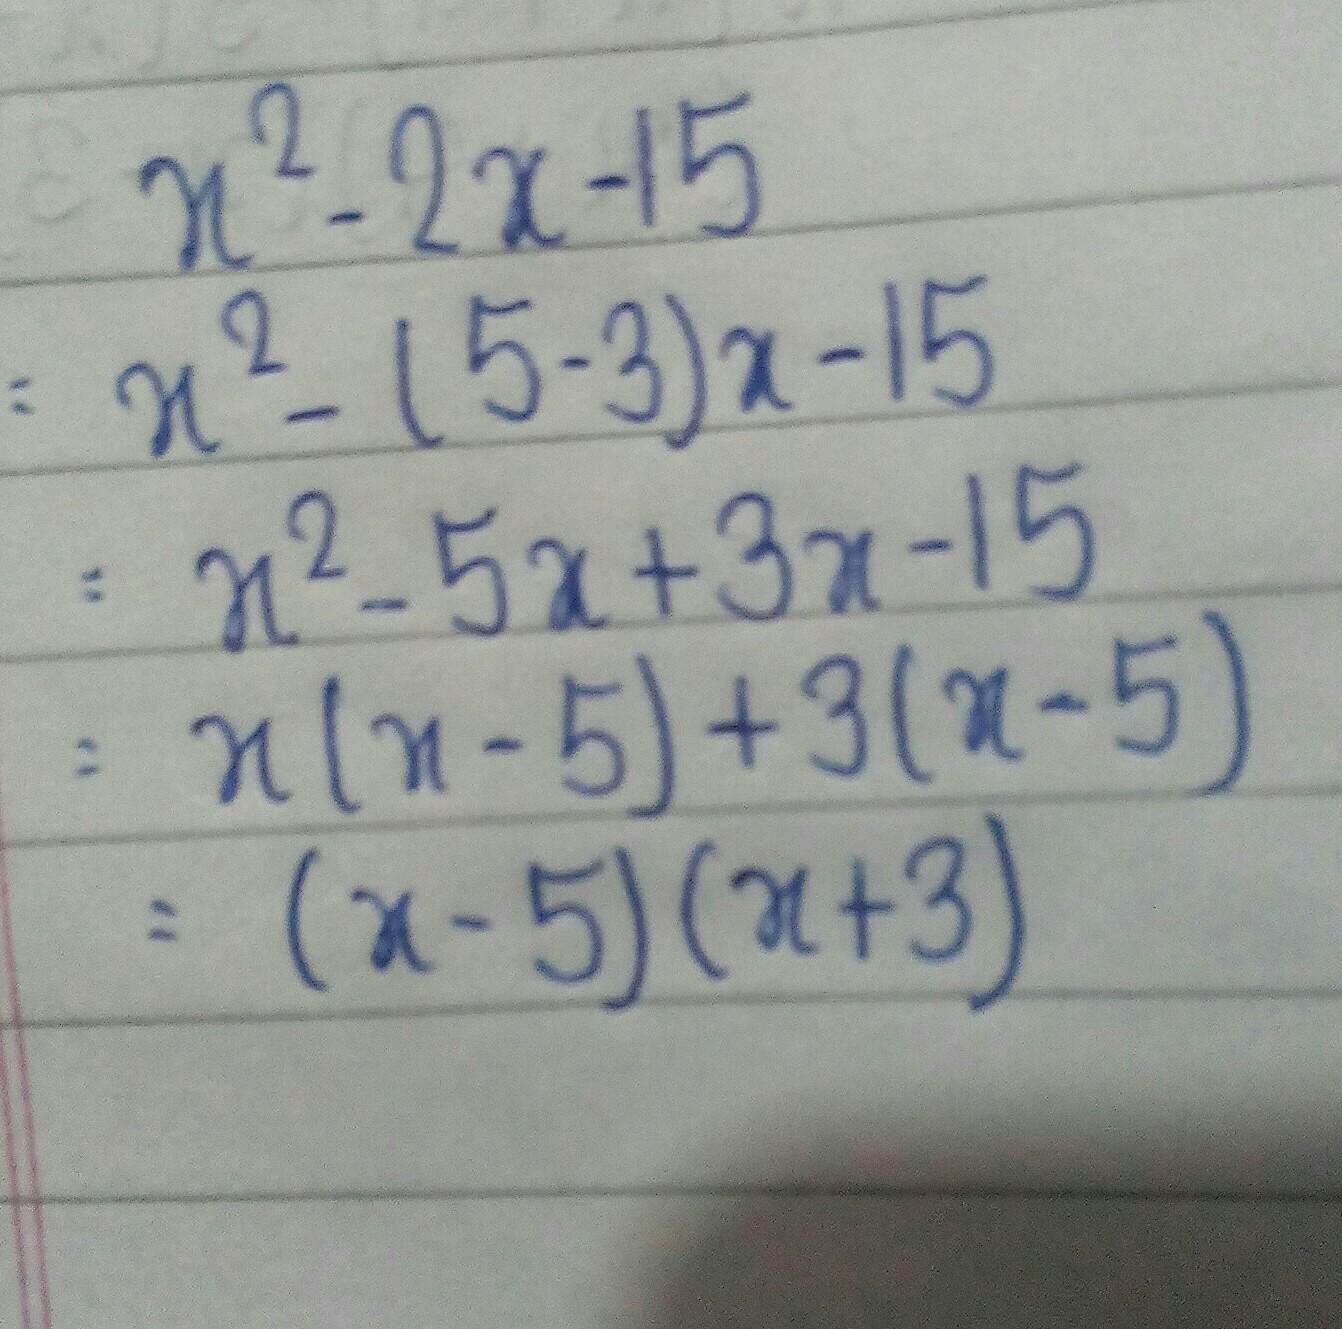 x² - 2x - 15
= x² - (5-3)x - 15
= x² - 5x + 3x - 15
= x(x - 5) + 3(x - 5)
= (x - 5)(x+3)